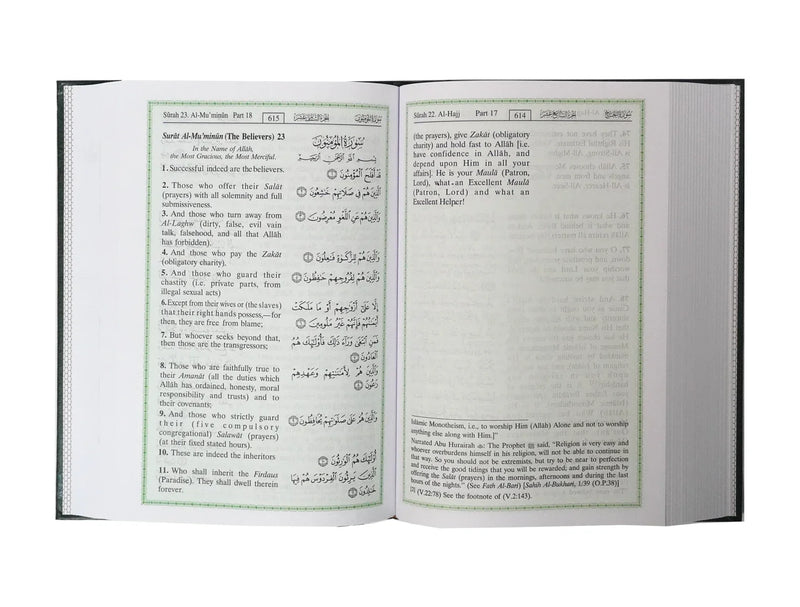 Sûrah 22. Al-Hajj Part 17 614 الجزء السابع عشر سورة الحج
(the prayers), give Zakât (obligatory
charity) and hold fast to Allâh [i.e.
have confidence in Allâh, and
depend upon Him in all your
affairs]. He is your Maulâ (Patron,
Lord), what an Excellent Maulâ
(Patron, Lord) and what an
Excellent Helper!
Islâmic Monotheism, i.e., to worship Him (Allâh) Alone and not to worship
anything else along with Him.]”
Narrated Abu Hurairah: The Prophet ﷺ said, “Religion is very easy and
whoever overburdens himself in his religion, will not be able to continue in
that way. So you should not be extremists, but try to be near to perfection
and receive the good tidings that you will be rewarded; and gain strength by
offering the Salât (prayers) in the mornings, afternoons and during the last
hours of the nights.” (See Fath Al-Bari) [Sahih Al-Bukhari, 1/39 (O.P.38)]
[2] (V.22:78) See the footnote of (V.2:143).
Sûrah 23. Al-Mu’minûn Part 18 615 الجزء الثامن عشر سورة المؤمنون
Surât Al-Mu’minûn (The Believers) 23
In the Name of Allâh,
the Most Gracious, the Most Merciful.
1. Successful indeed are the believers.
2. Those who offer their Salât
(prayers) with all solemnity and full
submissiveness.
3. And those who turn away from
Al-Laghw (dirty, false, evil vain
talk, falsehood, and all that Allâh
has forbidden).
4. And those who pay the Zakât
(obligatory charity).
5. And those who guard their
chastity (i.e. private parts, from
illegal sexual acts)
6. Except from their wives or (the slaves)
that their right hands possess,—for
then, they are free from blame;
7. But whoever seeks beyond that,
then those are the transgressors;
8. Those who are faithfully true to
their Amanât (all the duties which
Allâh has ordained, honesty, moral
responsibility and trusts) and to
their covenants;
9. And those who strictly guard
their (five compulsory
congregational) Salawât (prayers)
(at their fixed stated hours).
10. These are indeed the inheritors
11. Who shall inherit the Firdaus
(Paradise). They shall dwell therein
forever.
سورة المؤمنون
بسم الله الرحمن الرحيم
قَدْ أَفْلَحَ الْمُؤْمِنُونَ ١
الَّذِينَ هُمْ فِي صَلَاتِهِمْ خَاشِعُونَ ٢
وَالَّذِينَ هُمْ عَنِ اللَّغْوِ مُعْرِضُونَ ٣
وَالَّذِينَ هُمْ لِلزَّكَوٰةِ فَاعِلُونَ ٤
وَالَّذِينَ هُمْ لِفُرُوجِهِمْ حَافِظُونَ ٥
إِلَّا عَلَىٰ أَزْوَاجِهِمْ أَوْ مَا مَلَكَتْ
أَيْمَانُهُمْ فَإِنَّهُمْ غَيْرُ مَلُومِينَ ٦
فَمَنِ ابْتَغَىٰ وَرَاءَ ذَٰلِكَ فَأُولَٰئِكَ هُمُ
الْعَادُونَ ٧
وَالَّذِينَ هُمْ لِأَمَانَاتِهِمْ وَعَهْدِهِمْ
رَاعُونَ ٨
وَالَّذِينَ هُمْ عَلَىٰ صَلَوَاتِهِمْ يُحَافِظُونَ ٩
أُولَٰئِكَ هُمُ الْوَارِثُونَ ١٠
الَّذِينَ يَرِثُونَ الْفِرْدَوْسَ هُمْ فِيهَا
خَالِدُونَ ١١